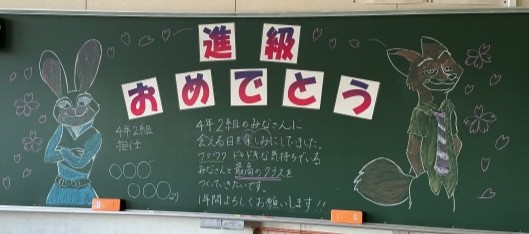 進級
おめでとう
4年2組
担任
○○○
○○○より
4年2組のみなさんに
会える日を楽しみにしていました。
ワクワク ドキドキな気持ちでいる
みなさんと最高のクラスを
つくっていきたいです。
1年間よろしくお願いします!!